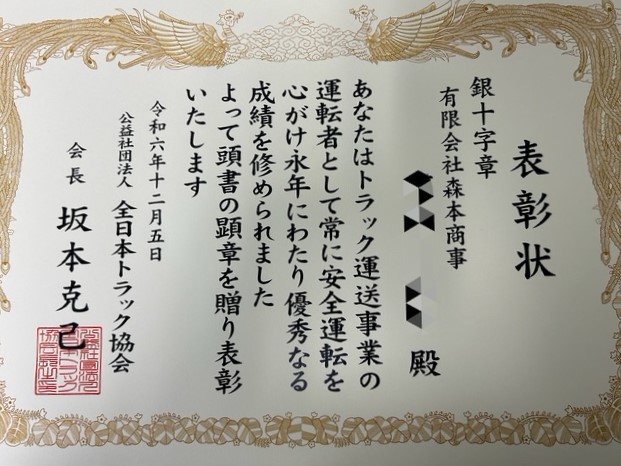 表彰状
銀十字章
有限会社森本商事
殿
あなたはトラック運送事業の
運転者として常に安全運転を
心がけ永年にわたり優秀なる
成績を修められました
よって頭書の顕章を贈り表彰
いたします
令和六年十二月五日
公益社団法人 全日本トラック協会
会長 坂本克己